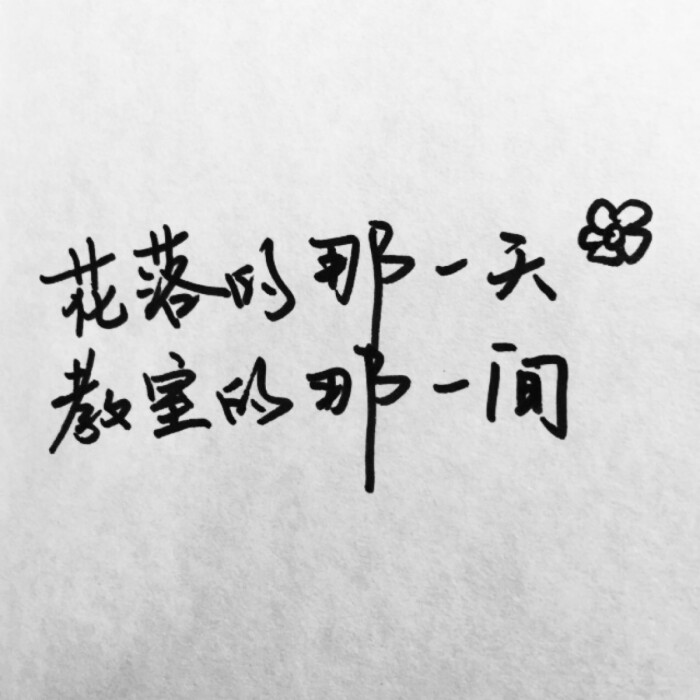 花落的那一天
教室的那一间